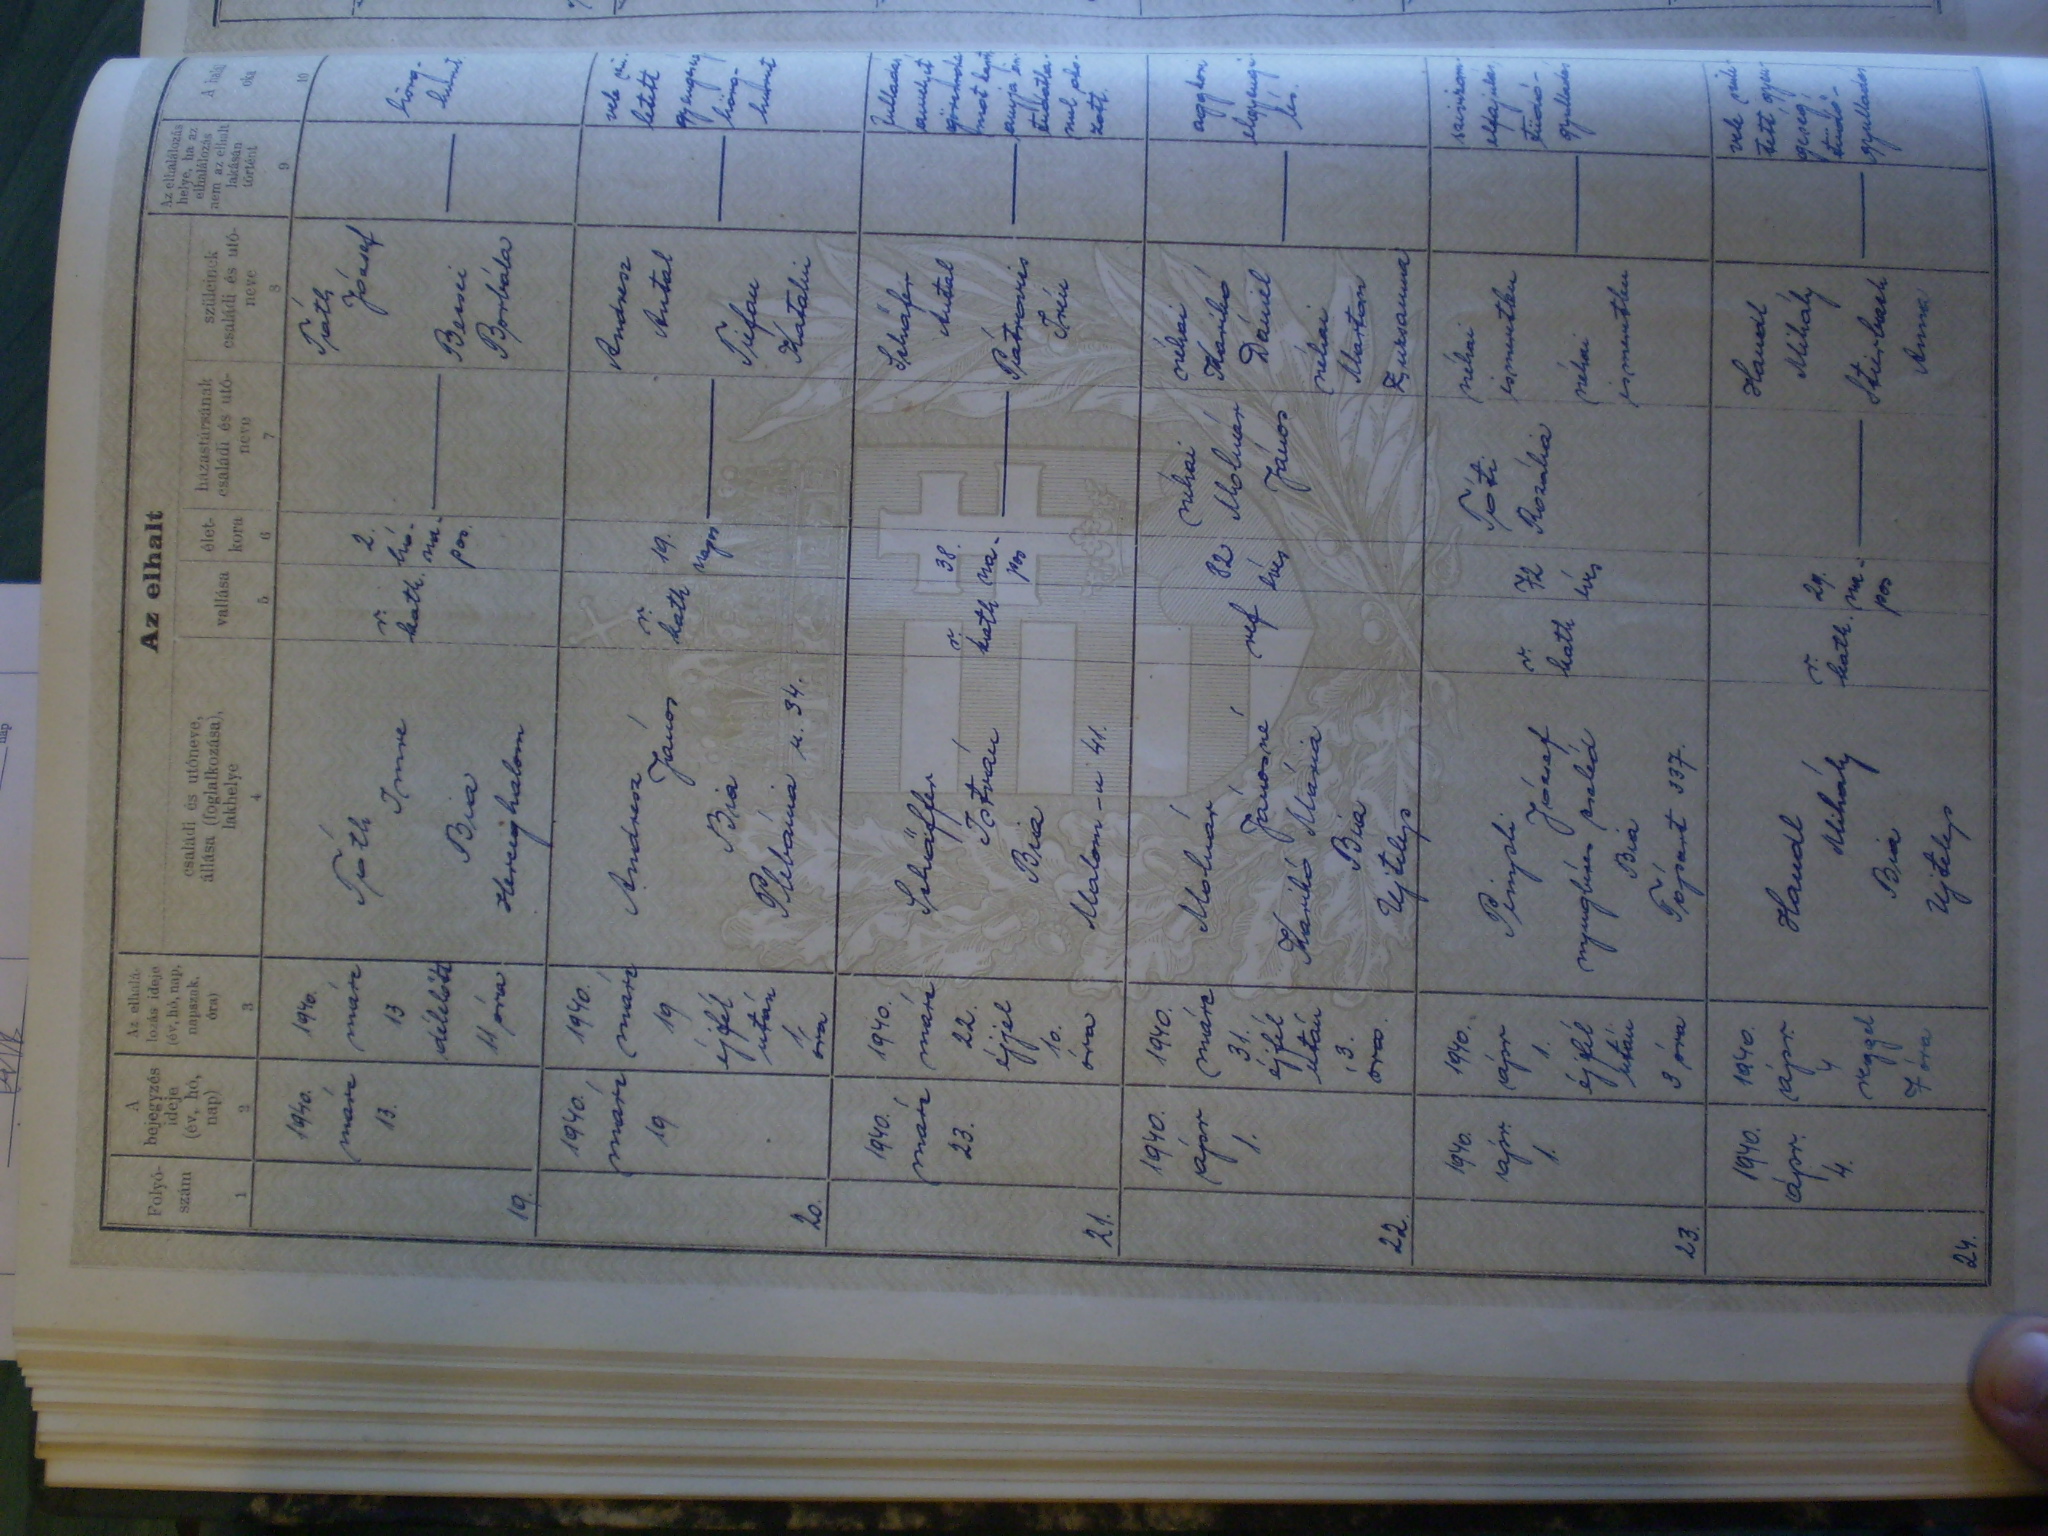 Az elhalt
Folyó-
szám
A
bejegyzés
ideje
(év, hó,
nap)
Az elhalá-
lozás ideje
(év, hó, nap,
napszak,
óra)
családi és utóneve,
állása (foglalkozása),
lakhelye
vallása
élet-
kora
házastársának
családi és utó-
neve
szüleinek
családi és utó-
neve
Az elhalálozás
helye, ha az
elhalálozás
nem az elhalt
lakásán
történt
A halál
oka
1
2
3
4
5
6
7
8
9
10
19.
1940.
márc
13.
1940.
márc
13
délelőtt
11 óra
Tóth
Imre
Bia
Herceghalom
r.
kath.
2.
hó-
na-
pos.
Tóth
József
Bessei
Borbála
hörg-
hurut
20.
1940.
márc
19
1940.
márc
19
éjfél
után
1.
óra
Andresz
János
Bia
Plébánia u. 34.
r.
kath
19.
napos
Andresz
Antal
Tiefau
Katalin
vele szü-
letett
gyengeség
hörg-
hurut
21.
1940.
márc
23.
1940.
márc
22.
éjjel
10.
óra
Schäffer
Zoltán
Bia
Malom-u 41.
r
kath
38.
na-
pos
Schäfer
Antal
Pátrovics
Irén
22
1940.
ápr
1.
1940.
márc
31.
éjfél
után
3.
óra.
Molnár
Jánosné
Karikó Mária
Bia
Ujtelep
ref
82
éves
néhai
Molnár
János
néhai
Karikó
Dániel
néhai
Marton
Zsuzsanna
aggkori
elgyengü-
lés.
23.
1940.
ápr.
1.
1940.
ápr
1.
éjfél
után
3 óra
Pimpli
József
nyugbéres cseléd
Bia
Tópart 337.
r.
kath
72
éves
Tóti
Rozália
néhai
ismeretlen
néhai
ismeretlen
szívizom-
elfajulás,
tüdő-
gyulladás
24.
1940.
ápr.
4.
1940.
ápr.
4
reggel
7 óra
Handl
Mihály
Bia
Ujtelep
r.
kath.
29.
na-
pos
Handl
Mihály
Stierbach
Anna
vele szüle-
tett gyen-
geség
tüdő-
gyulladás